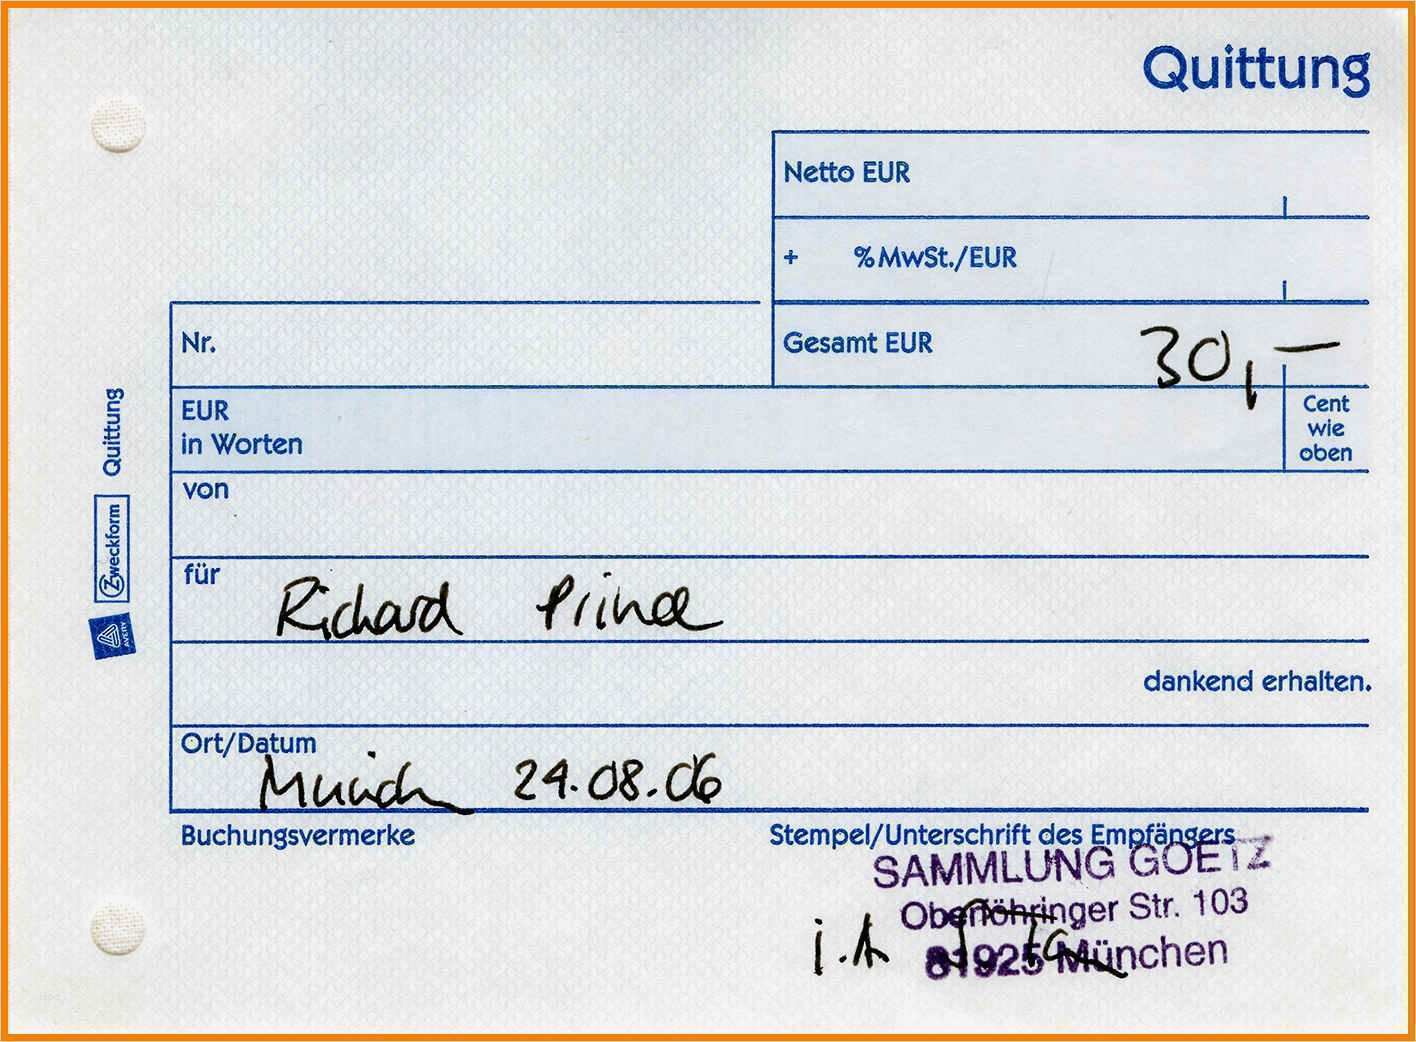 Quittung
Netto EUR
+ % MwSt./EUR
Nr.
Gesamt EUR 30,—
EUR
in Worten
Cent
wie
oben
von
für Richard Prince
dankend erhalten.
Ort/Datum
Munich 24.08.06
Buchungsvermerke
Stempel/Unterschrift des Empfängers
SAMMLUNG GOETZ
Oberföhringer Str. 103
i.A
81925 München
Quittung
Zweckform
AVERY